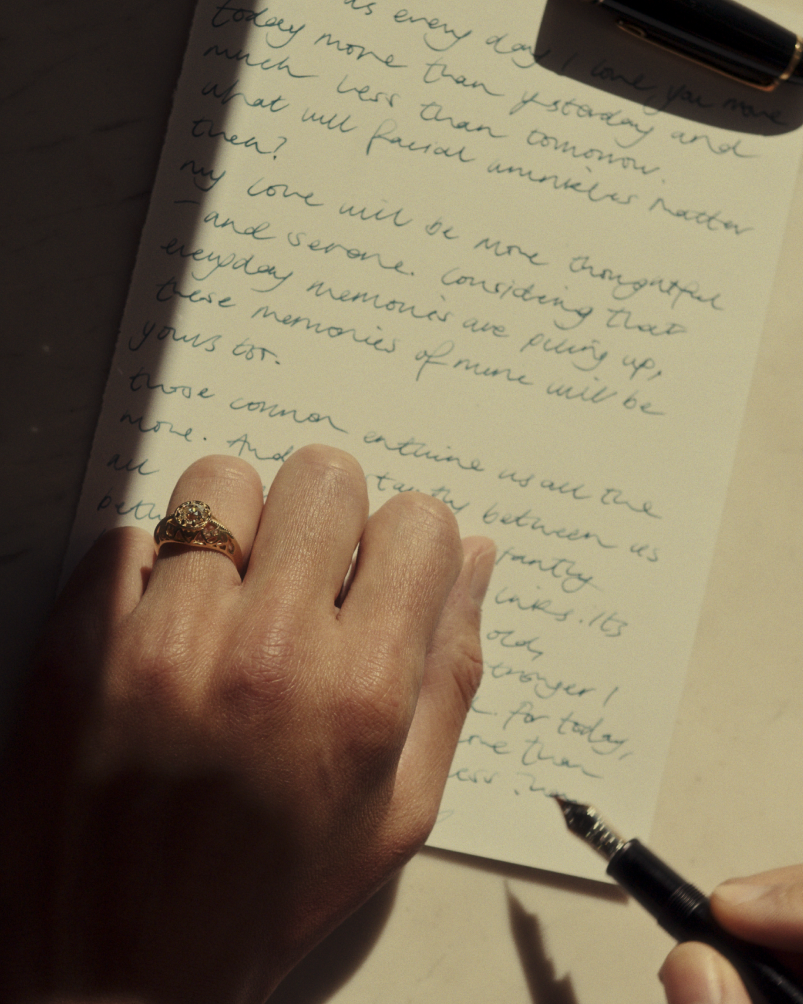 as every day I love you more
today more than yesterday and
much less than tomorrow.
what will facial wrinkles matter
then?
my love will be more thoughtful
- and serene. Considering that
everyday memories are piling up,
these memories of mine will be
yours too.
those common entwine us all the
more. And between us
all
betw links. Its
old,
stronger!
for today,
more than
less